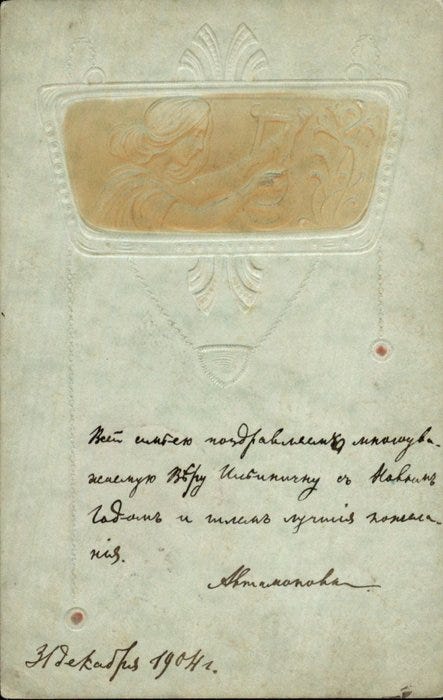 Всей семьею поздравляемъ многоува-
жаемую Вѣру Ильиничну съ Новымъ
Годомъ и шлемъ лучшія пожела-
нія.
Автамоновы
31 декабря 1904 г.